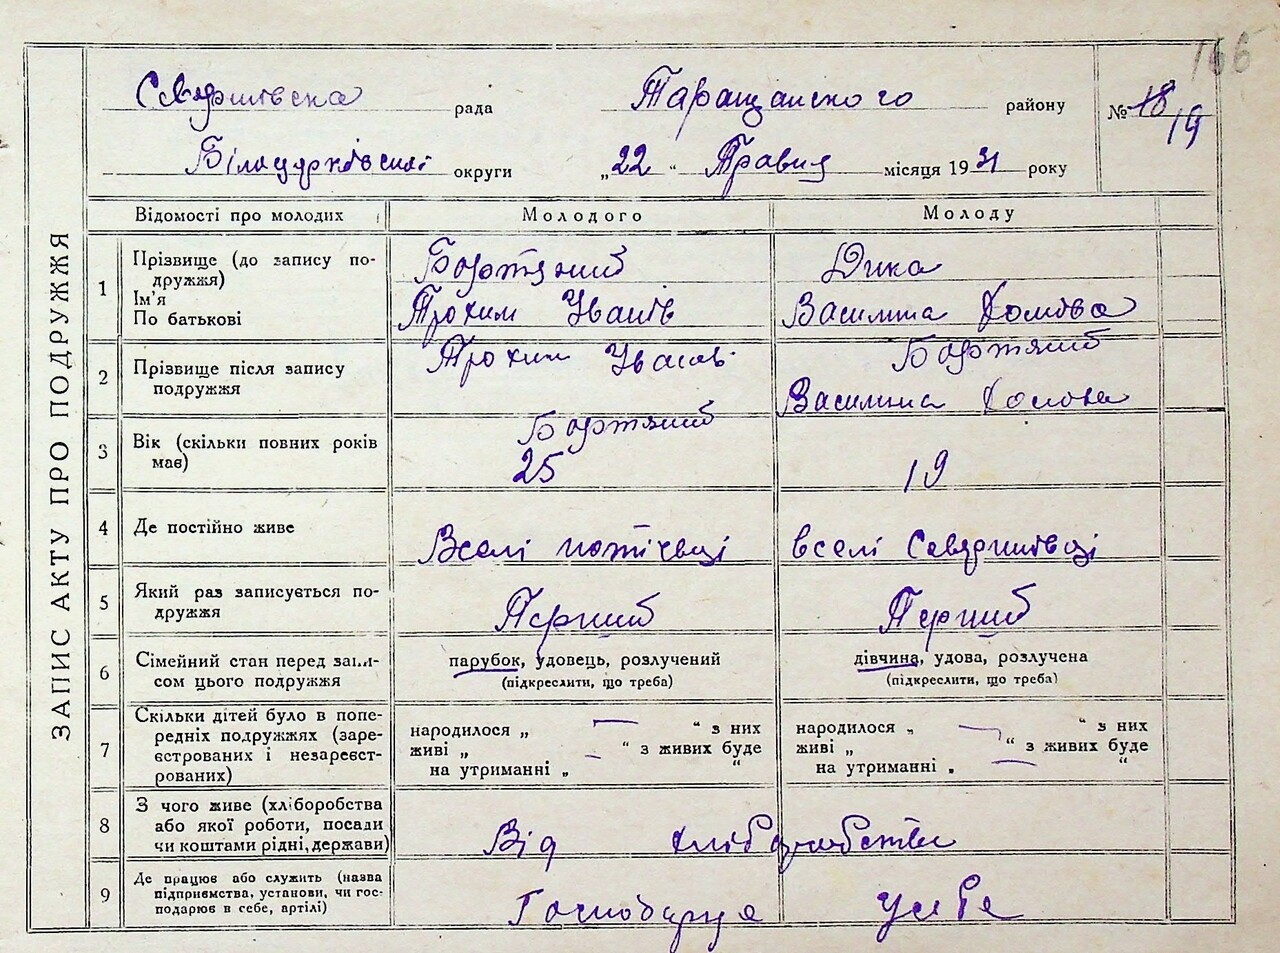 166
Северинівска рада Таращанского району № 18 19
Білоцерківскої округи „22“ Травня місяця 1931 року
ЗАПИС АКТУ ПРО ПОДРУЖЖЯ
Відомості про молодих Молодого Молоду
1 Прізвище (до запису подружжя) Бортяний Дика
Ім'я
По батькові Трохим Іванів Василина
2 Прізвище після запису подружжя Трохим Іванів Бортяний
Василина
Бортяний
3 Вік (скільки повних років має) 25 19
4 Де постійно живе Вселі потіевці вселі Северинівці
5 Який раз записується подружжя Перший Перший
6 Сімейний стан перед записом цього подружжя парубок, удовець, розлучений дівчина, удова, розлучена
(підкреслити, що треба) (підкреслити, що треба)
7 Скільки дітей було в попередніх подружжях (зареєстрованих і незареєстрованих)
народилося „ — “ з них народилося „ — “ з них
живі „ — “ з живих буде живі „ — “ з живих буде
на утриманні „ “ на утриманні „ “
8 З чого живе (хліборобства або якої роботи, посади чи коштами рідні, держави) Від хліборобства
9 Де працює або служить (назва підприємства, установи, чи господарює в себе, артілі) Господарує усебе